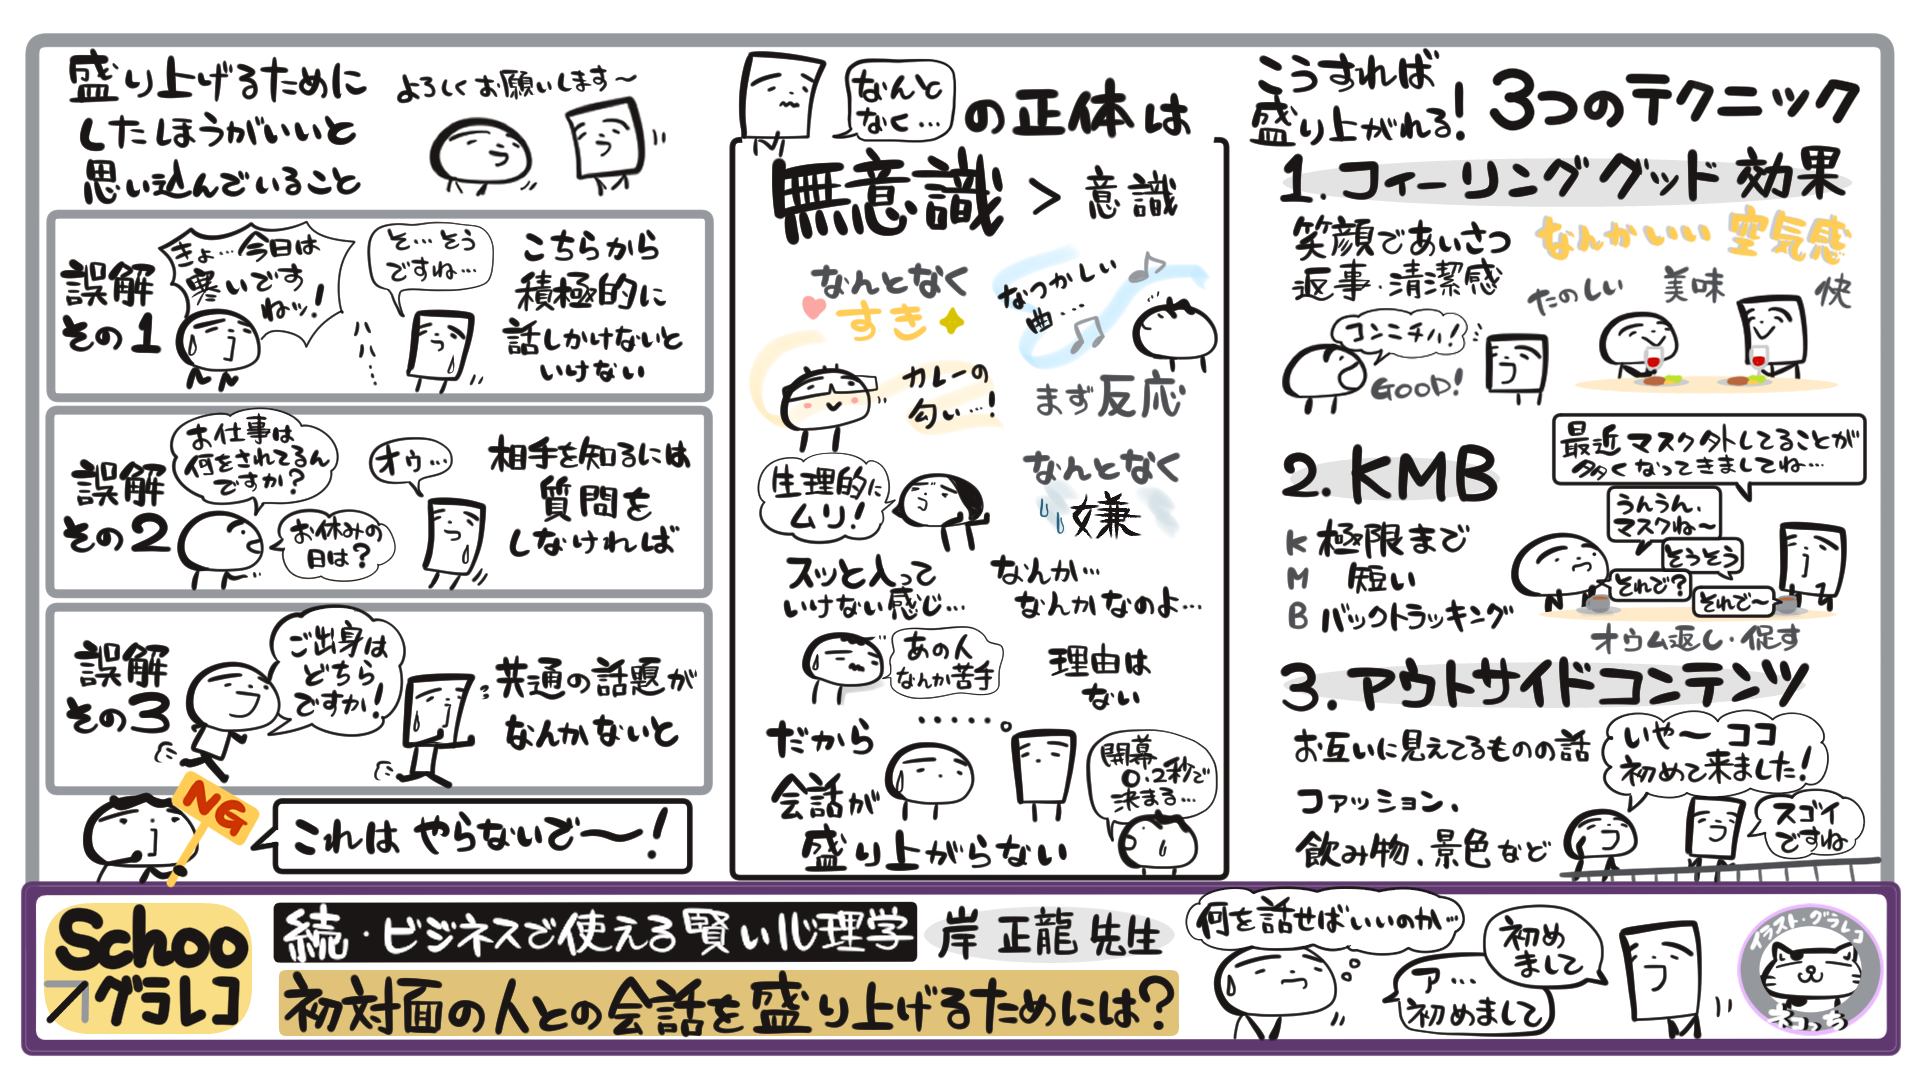 盛り上げるために
したほうがいいと
思い込んでいること
よろしくお願いします〜
誤解
その1
きょ…今日は
寒いです
ねッ!
そ…そう
ですね…
こちらから
積極的に
話しかけないと
いけない
誤解
その2
お仕事は
何をされてるん
ですか?
お休みの
日は?
オゥ…
相手を知るには
質問を
しなければ
誤解
その3
ご出身は
どちら
ですか!
共通の話題が
なんかないと
NG
これは やらないで〜!
なんと
なく…
の正体は
無意識 > 意識
なんとなく
すき
なつかしい
曲…
カレーの
匂い…!
まず反応
生理的に
ムリ!
なんとなく
嫌
スッと入って
いけない感じ…
なんか…
なんかなのよ…
あの人
なんか苦手
理由は
ない
だから
会話が
盛り上がらない
・・・・・・
開幕
0.2秒で
決まる…
こうすれば
盛り上がれる!
3つのテクニック
1. フィーリンググッド効果
笑顔であいさつ
返事・清潔感
なんかいい 空気感
たのしい
美味
快
コンニチハ!
GOOD!
2. KMB
K 極限まで
M 短い
B バックトラッキング
最近 マスク外してることが
多くなってきましてね…
うんうん、
マスクね〜
そうそう
それで?
それで〜
オウム返し・促す
3. アウトサイドコンテンツ
お互いに見えてるものの話
ファッション、
飲み物、景色など
いや〜 ココ
初めて来ました!
スゴイ
ですね
Schoo
グラレコ
続・ビジネスで使える賢い心理学
岸 正龍 先生
初対面の人との会話を盛り上げるためには?
何を話せばいいのか…
ア…
初めまして
初め
まして
イラスト・グラレコ
ネコっち